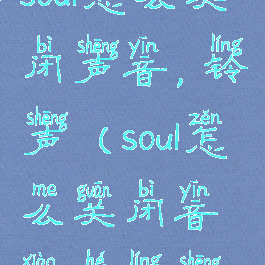 soul怎么关
bì shēng yīn líng
闭声音，铃
shēng zěn
声（soul怎
me guān bì yīn
么关闭音
xiào hé líng shēng